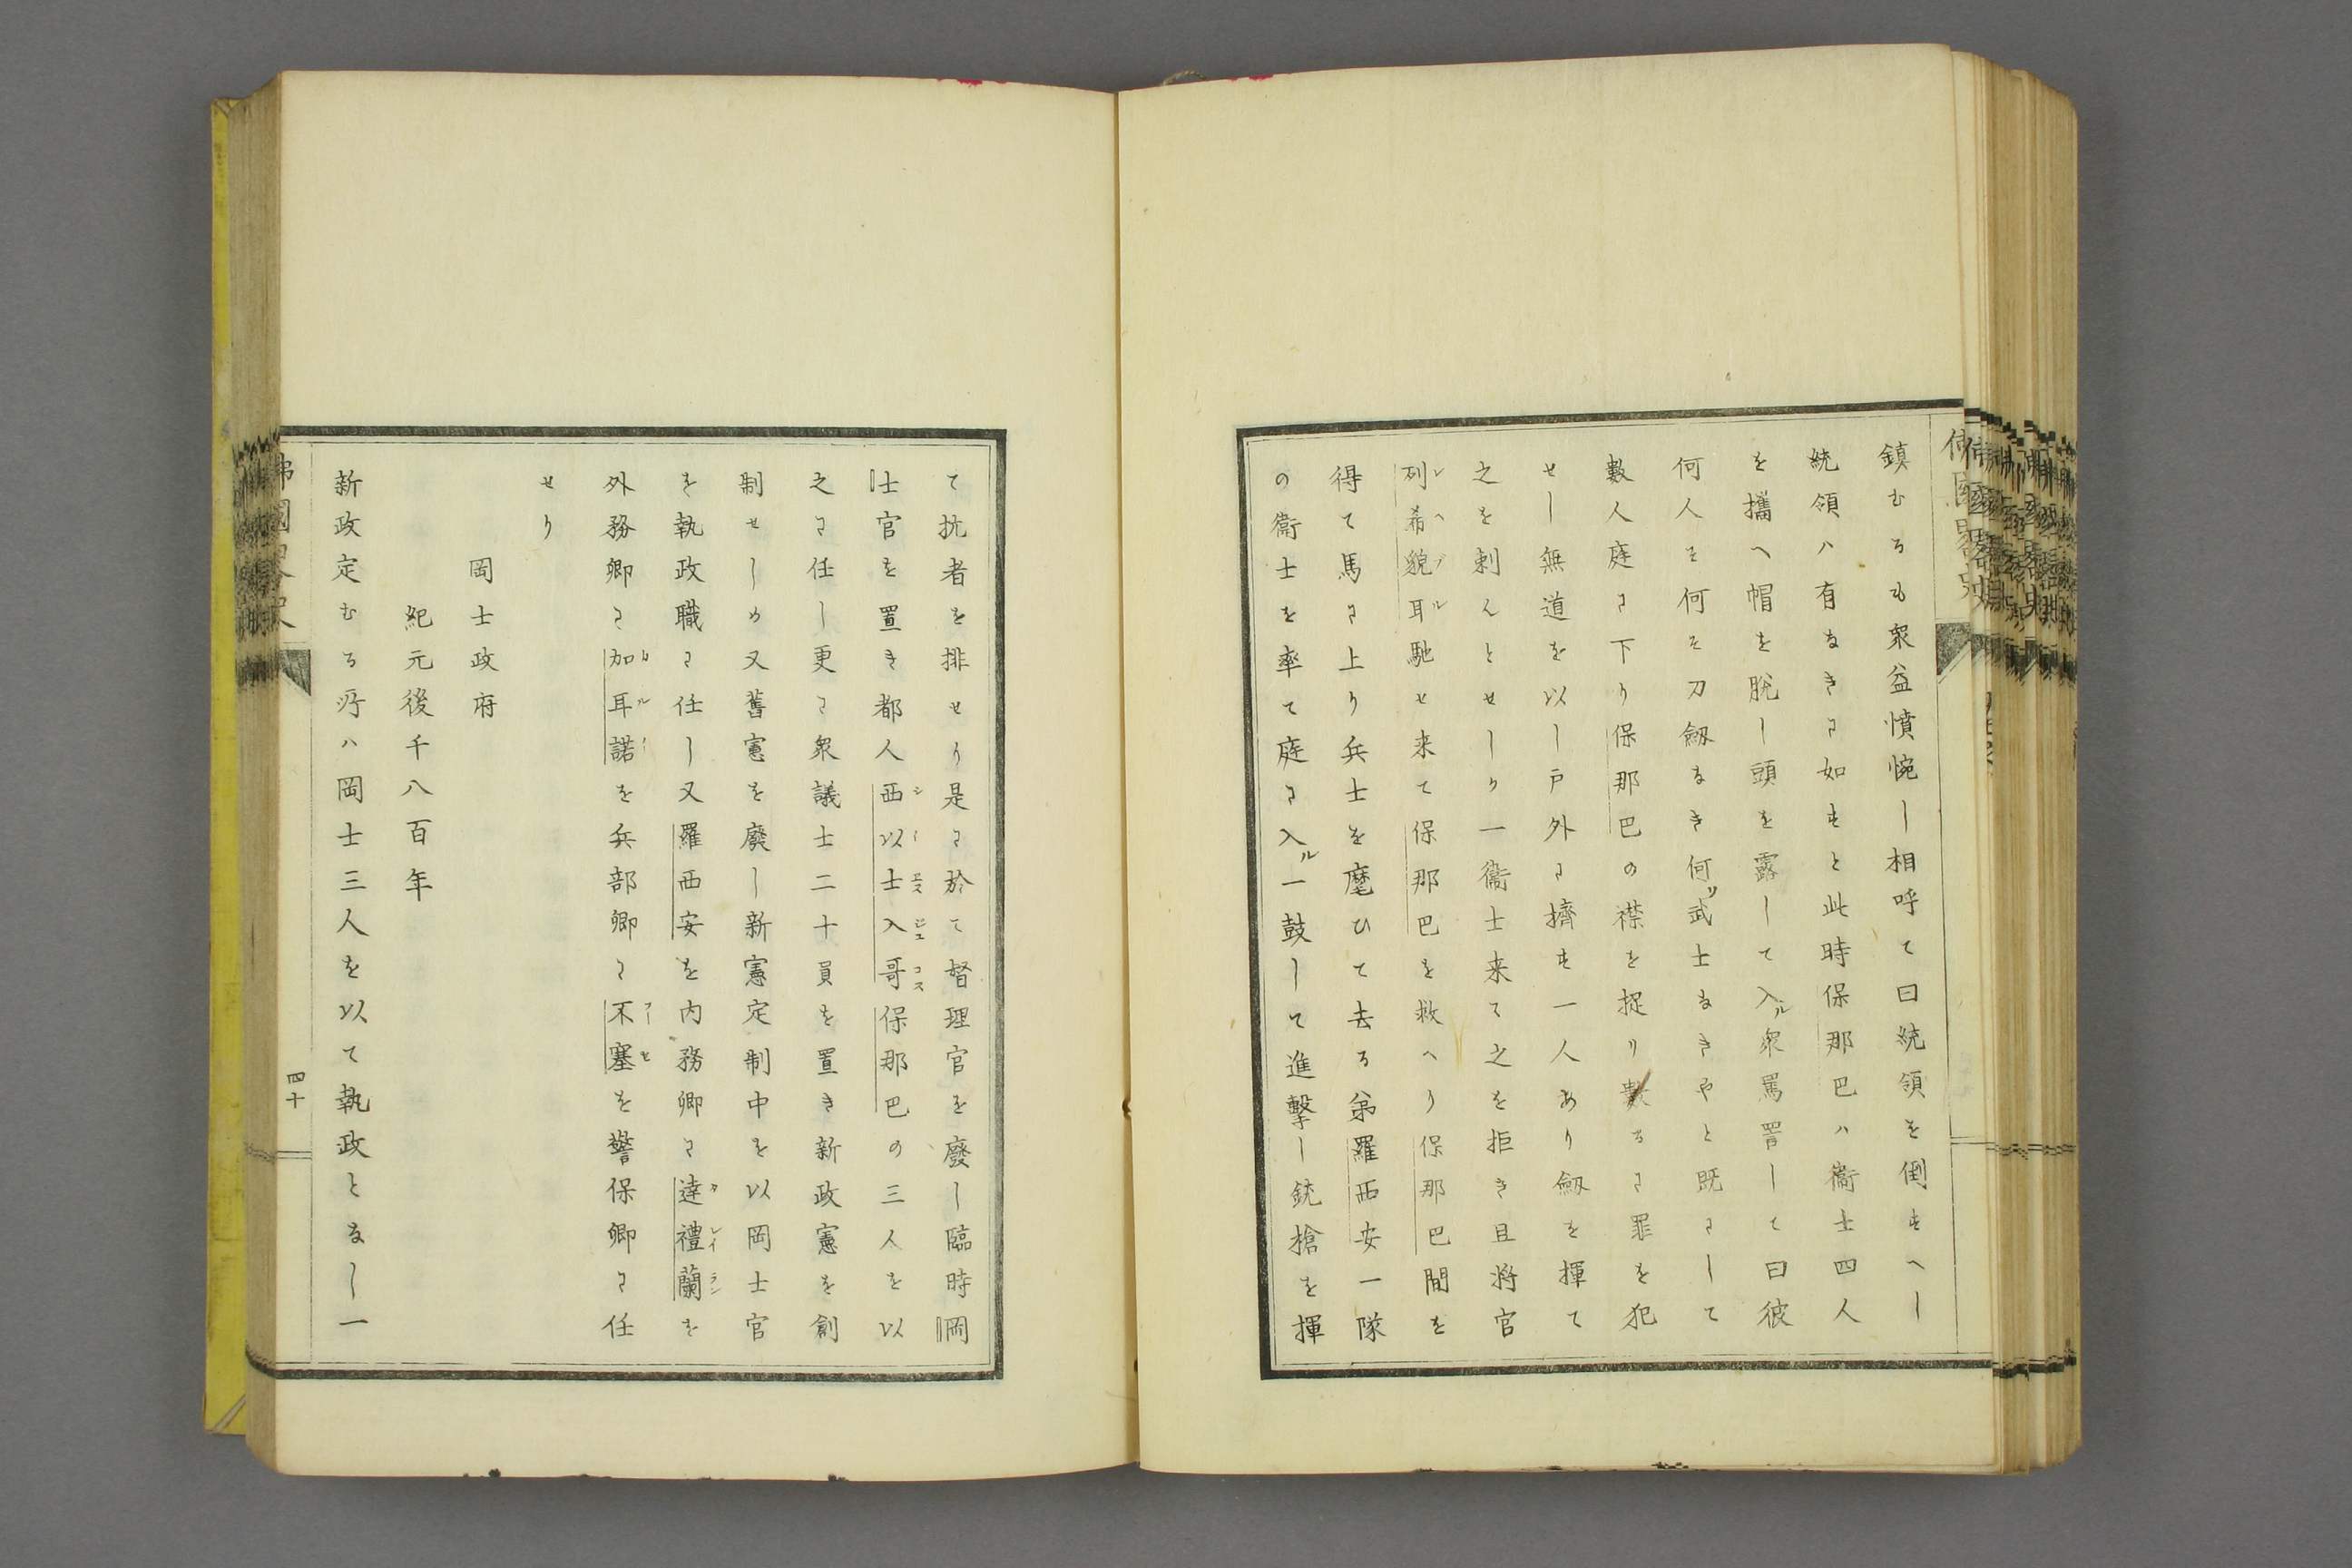 鎮むるも衆益憤惋し相呼て曰統領を倒すへし
統領ハ有なきに如すと此時保那巴ハ衞士四人
を攜へ帽を脱し頭を露して入ル衆罵詈して曰彼
何人そ何そ刀劔なき何ソ武士なきやと既にして
數人庭に下り保那巴の襟を捉り數るに罪を犯
せし無道を以し戸外に擠す一人あり劔を揮て
之を刺んとせしり一衞士来て之を拒き且将官
列希貌耳馳せ来て保那巴を救へり保那巴間を
レヘブル
得て馬に上り兵士を麾ひて去る弟羅西安一隊
の衞士を率て庭に入ル一鼓して進擊し銃槍を揮
て抗者を排せり是に於て督理官を廢し臨時岡
士官を置き都人西以士入哥保那巴の三人を以
シーエスジユコス
之に任し更に衆議士二十員を置き新政憲を創
制せしめ又舊憲を廢し新憲定制中を以岡士官
を執政職に任し又羅西安を内務卿に達禮蘭を
タレイラン
外務卿に加耳諾を兵部卿に不塞を警保卿に任
カルノー
フーセ
せり
岡士政府
紀元後千八百年
新政定むる所ハ岡士三人を以て執政となし一
四十